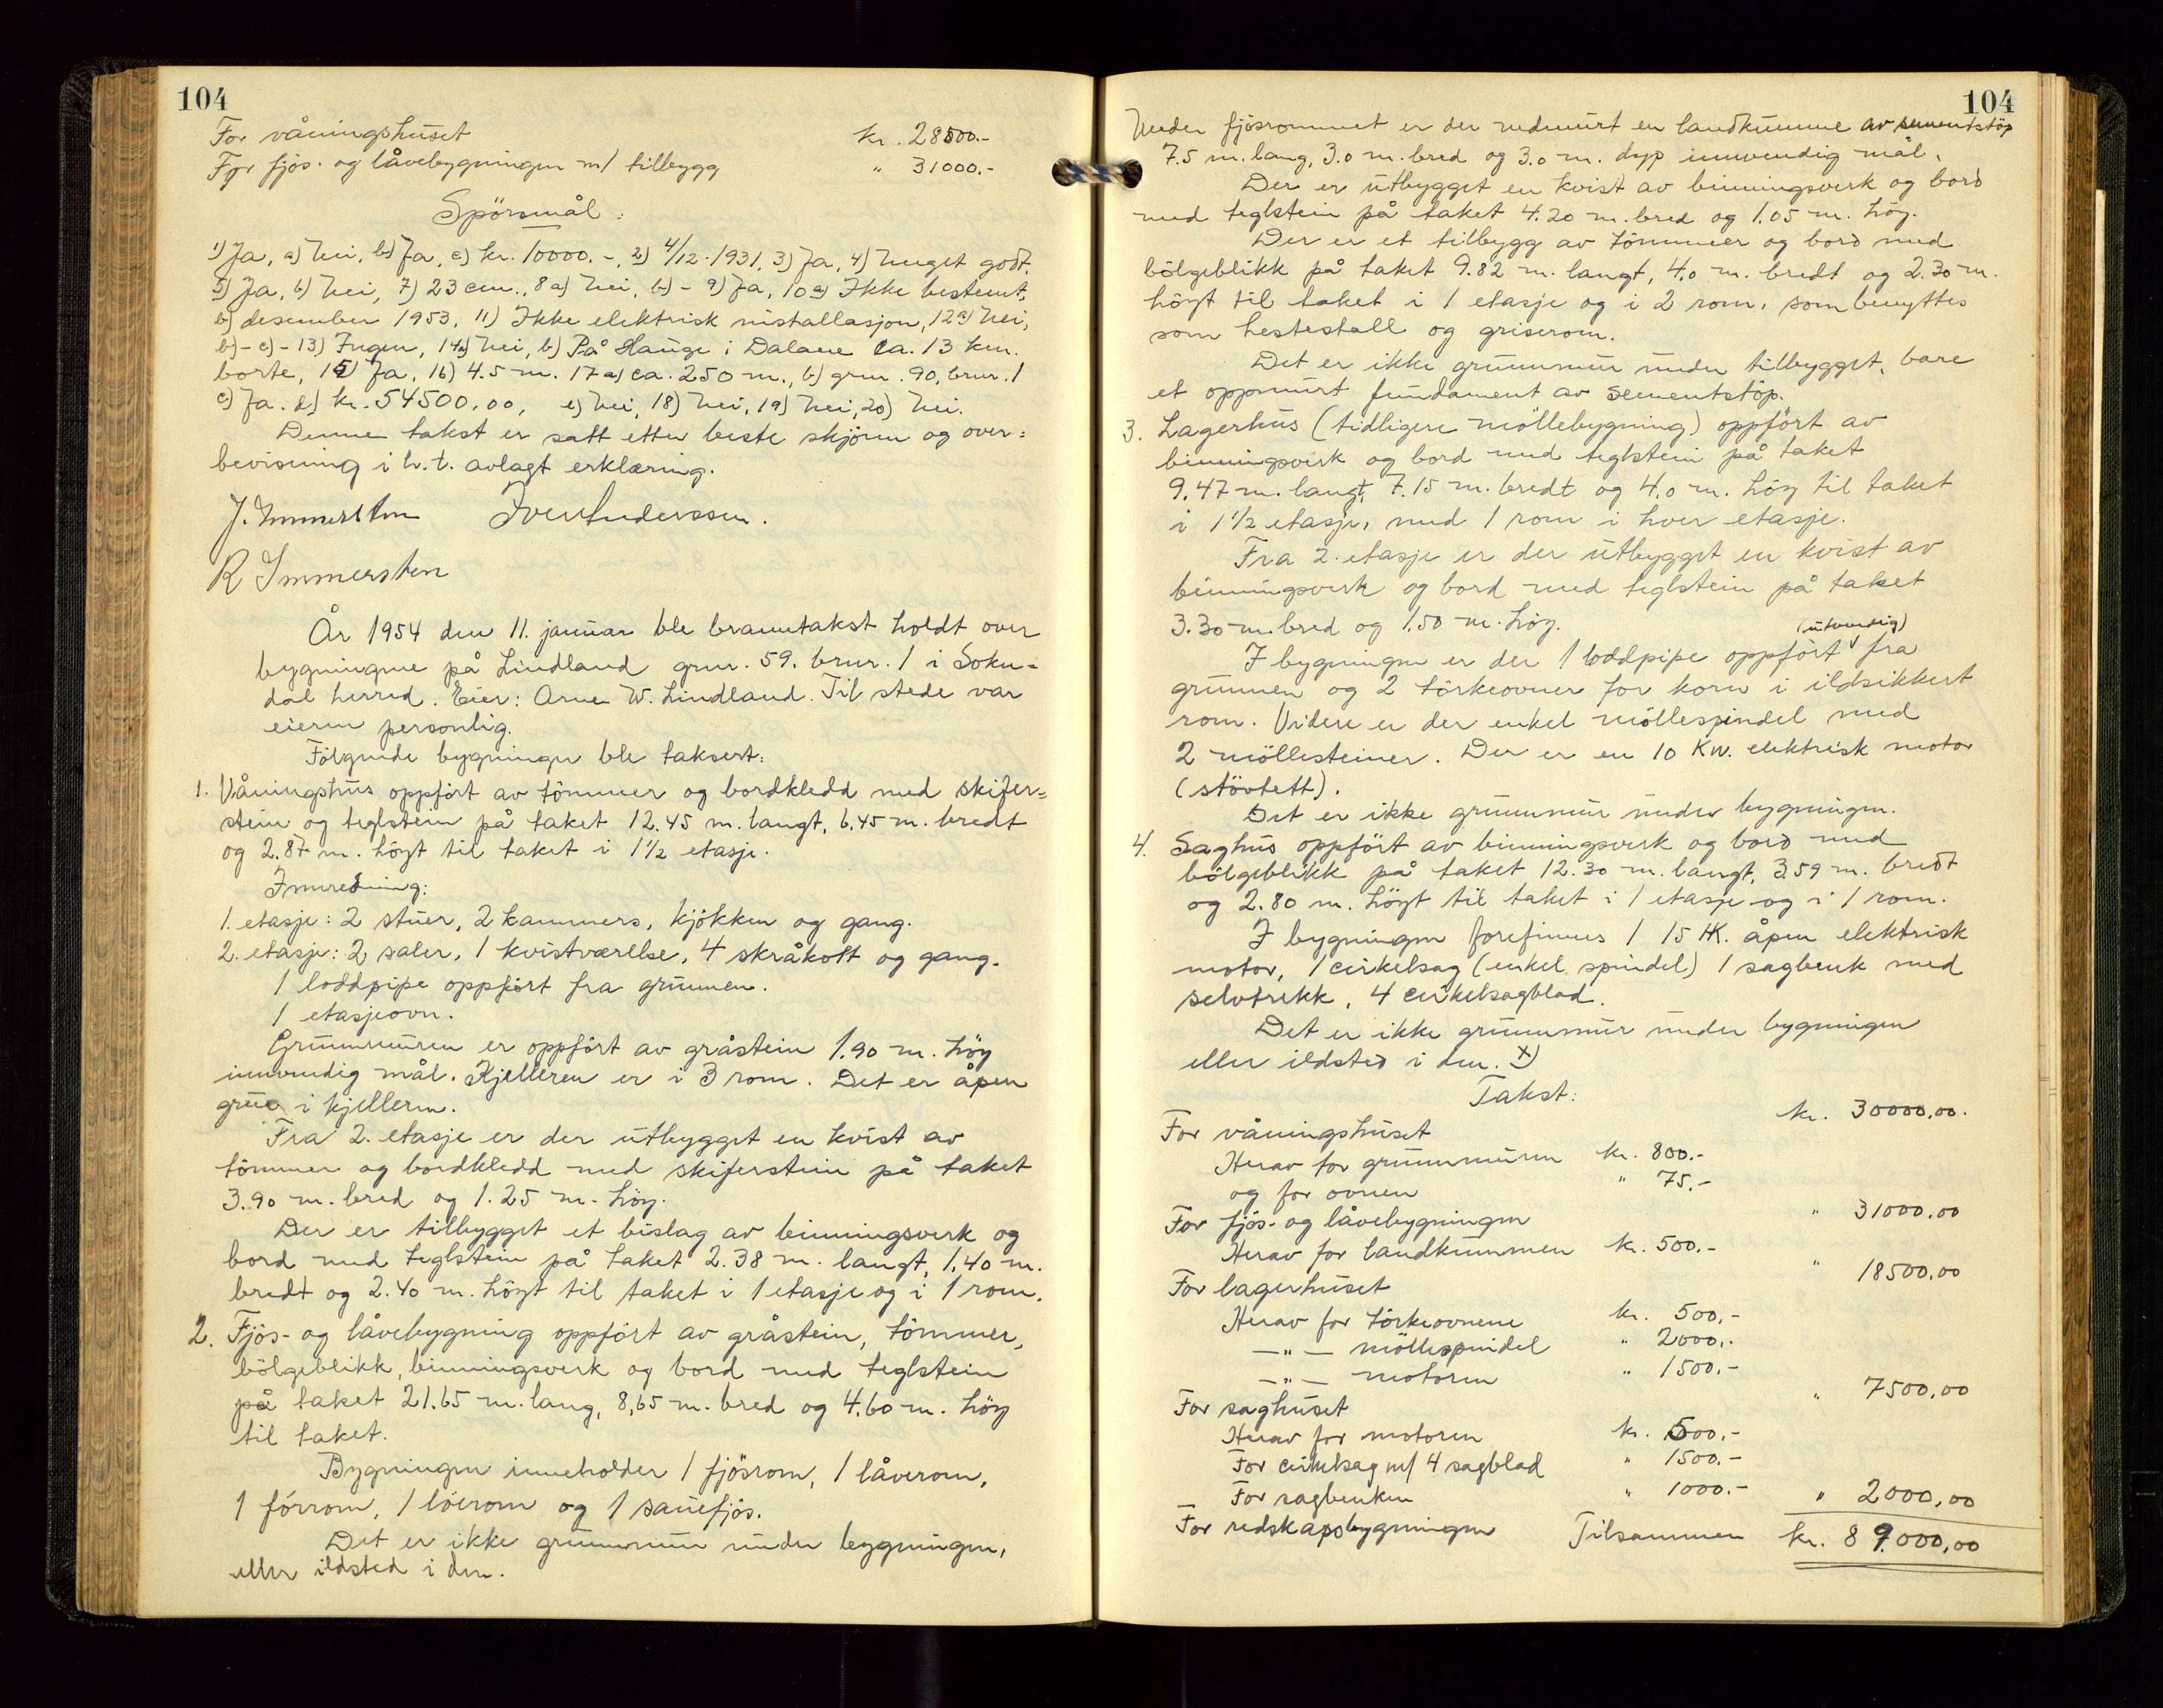 104
For våningshuset kr. 28500.-
For fjøs- og låvebygningen m/ tilbygg " 31000.-
Spörsmål:
1) Ja, a) Nei, b) Ja, c) kr. 10000.-, 2) 4/12-1931, 3) Ja, 4) Meget godt.
5) Ja, 6) Nei, 7) 23 cm., 8 a) Nei, b) - 9) Ja, 10 a) Ikke bestemt,
b) desember 1953, 11) Ikke elektrisk installasjon, 12 a) Nei,
b) - c) - 13) Ingen, 14 a) Nei, b) På Hauge i Dalane ca. 13 km.
borte, 15) Ja, 16) 4.5 m. 17 a) ca. 250 m., b) gnr. 90, bnr. 1
c) Ja. d) kr. 54500,00, e) Nei, 18) Nei, 19) Nei, 20) Nei.
Denne takst er satt etter beste skjönn og over=
bevisning i h.t. avlagt erklæring.
J. Immersten Iver Anderssen.
R Immersten
År 1954 den 11. januar ble branntakst holdt over
bygningene på Lindland gnr. 59. bnr. 1 i Soku=
dal herred. Eier: Arne W. Lindland. Til stede var
eieren personlig.
Fölgende bygninger ble taksert:
1. Våningshus oppfört av tömmer og bordkledd med skifer=
stein og teglstein på taket 12.45 m. langt, 6.45 m. bredt
og 2.87 m. höyt til taket i 1 1/2 etasje.
Innredning:
1. etasje: 2 stuer, 2 kammers, kjökken og gang.
2. etasje: 2 saler, 1 kvistværelse, 4 skråkott og gang.
1 loddpipe oppfört fra grunnen.
1 etasjeovn.
Grunnmuren er oppfört av gråstein 1.90 m. höy
innvendig mål. Kjelleren er i 3 rom. Det er åpen
grue i kjelleren.
Fra 2. etasje er der utbygget en kvist av
tömmer og bordkledd med skiferstein på taket
3.90 m. bred og 1.25 m. höy.
Der er tilbygget et bislag av binningsverk og
bord med teglstein på taket 2.38 m. langt, 1.40 m.
bredt og 2.40 m. höyt til taket i 1 etasje og i 1 rom.
2. Fjös- og låvebygning oppfört av gråstein, tömmer,
bölgeblikk, binningsverk og bord med teglstein
på taket 21.65 m. lang, 8,65 m. bred og 4.60 m. höy
til taket.
Bygningen inneholder 1 fjösrom, 1 låverom,
1 fórrom, 1 löerom og 1 sauefjös.
Det er ikke grunnmur under bygningen,
eller ildsted i den.
104
Under fjösrommet er der nedmurt en landkumme av sementstöp
7.5 m. lang, 3.0 m. bred og 3.0 m. dyp innvendig mål.
Der er utbygget en kvist av binningsverk og bord
med teglstein på taket 4.20 m. bred og 1.05 m. höy.
Der er et tilbygg av tömmer og bord med
bölgeblikk på taket 9.82 m. langt, 4.0 m. bredt og 2.30 m.
höyt til taket i 1 etasje og i 2 rom, som benyttes
som hestestall og griserom.
Det er ikke grunnmur under tilbygget, bare
et oppmurt fundament av sementstöp.
3. Lagerhus (tidligere möllebygning) oppfört av
binningsverk og bord med teglstein på taket
9.47 m. langt, 7.15 m. bredt og 4.0 m. höy til taket
i 1 1/2 etasje, med 1 rom i hver etasje.
Fra 2. etasje er der utbygget en kvist av
binningsverk og bord med teglstein på taket
3.30 m. bred og 1.50 m. höy.
(utvendig)
I bygningen er der 1 loddpipe oppfört fra
grunnen og 2 törkeovner for korn i ildsikkert
rom. Videre er der enkel möllespindel med
2 möllesteiner. Der er en 10 KW. elektrisk motor
(stövtett).
Det er ikke grunnmur under bygningen.
4. Saghus oppfört av binningsverk og bord med
bölgeblikk på taket 12.30 m. langt, 3.59 m. bredt
og 2.80 m. höyt til taket i 1 etasje og i 1 rom.
I bygningen forefinnes 1 15 HK. åpen elektrisk
motor, 1 cirkelsag (enkel spindel) 1 sagbenk med
selvtrekk, 4 cirkelsagblad.
Det er ikke grunnmur under bygningen
eller ildsted i den. x)
Takst:
For våningshuset kr. 30000,00.
Herav for grunnmuren kr. 800.-
og for ovnen " 75.-
For fjös- og låvebygningen " 31000,00
Herav for landkummen kr. 500.-
For lagerhuset " 18500,00
Herav for törkeovnene kr. 500,-
-"- möllespindel " 2000,-
-"- motoren " 1500,-
For saghuset " 7500,00
Herav for motoren kr. 500,-
For cirkelsag m/ 4 sagblad " 1500.-
For sagbenken " 1000.-
For redskapsbygningen " 2000,00
Tilsammen kr. 89.000,00